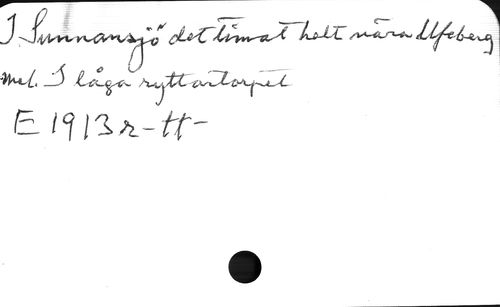 I Sunnansjö det timat helt nära Ulfeberg
mel. I låga ryttartorpet
E 1913 r-tt-